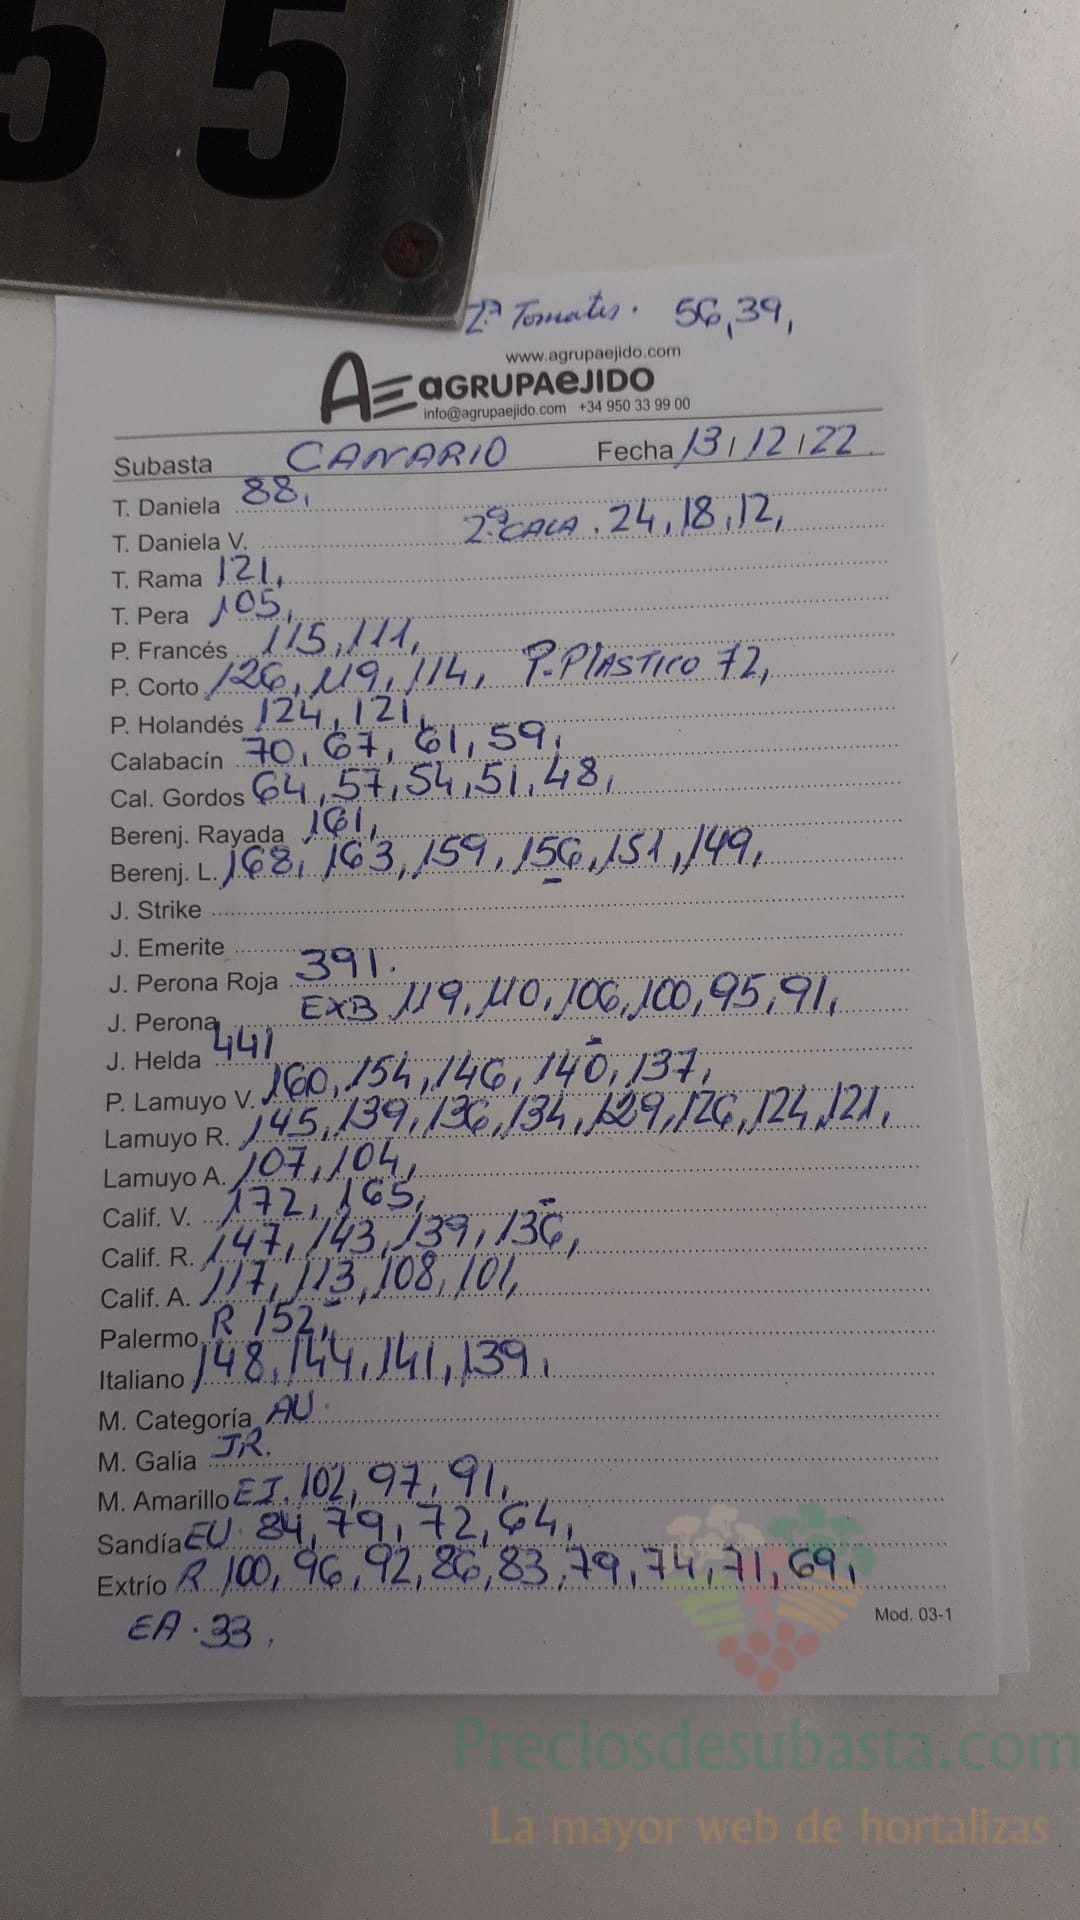 55
2ª Tomates. 56,39,
www.agrupaejido.com
AE aGRUPAeJIDO
info@agrupaejido.com +34 950 33 99 00
Subasta CANARIO Fecha 13/12/22
T. Daniela 88,
T. Daniela V. 2ª CALA. 24,18,12,
T. Rama 121,
T. Pera 105,
P. Francés 115,111,
P. Corto 126,119,114, P. PLASTICO 72,
P. Holandés 124,121,
Calabacín 70,67,61,59,
Cal. Gordos 64,57,54,51,48,
Berenj. Rayada 161,
Berenj. L. 168,163,159,156,151,149,
J. Strike
J. Emerite
J. Perona Roja 391.
J. Perona EXB 119,110,106,100,95,91,
J. Helda 441
P. Lamuyo V. 160,154,146,140,137,
Lamuyo R. 145,139,136,134,129,126,124,121,
Lamuyo A. 107,104,
Calif. V. 172,165,
Calif. R. 147,143,139,136,
Calif. A. 117,113,108,101,
Palermo R 152,
Italiano 148,144,141,139,
M. Categoría AU.
M. Galia JR.
M. Amarillo EI. 102,97,91,
Sandía EU. 84,79,72,64,
Extrío R 100,96,92,86,83,79,74,71,69,
EA. 33,
Mod. 03-1
Preciosdesubasta.com
La mayor web de hortalizas